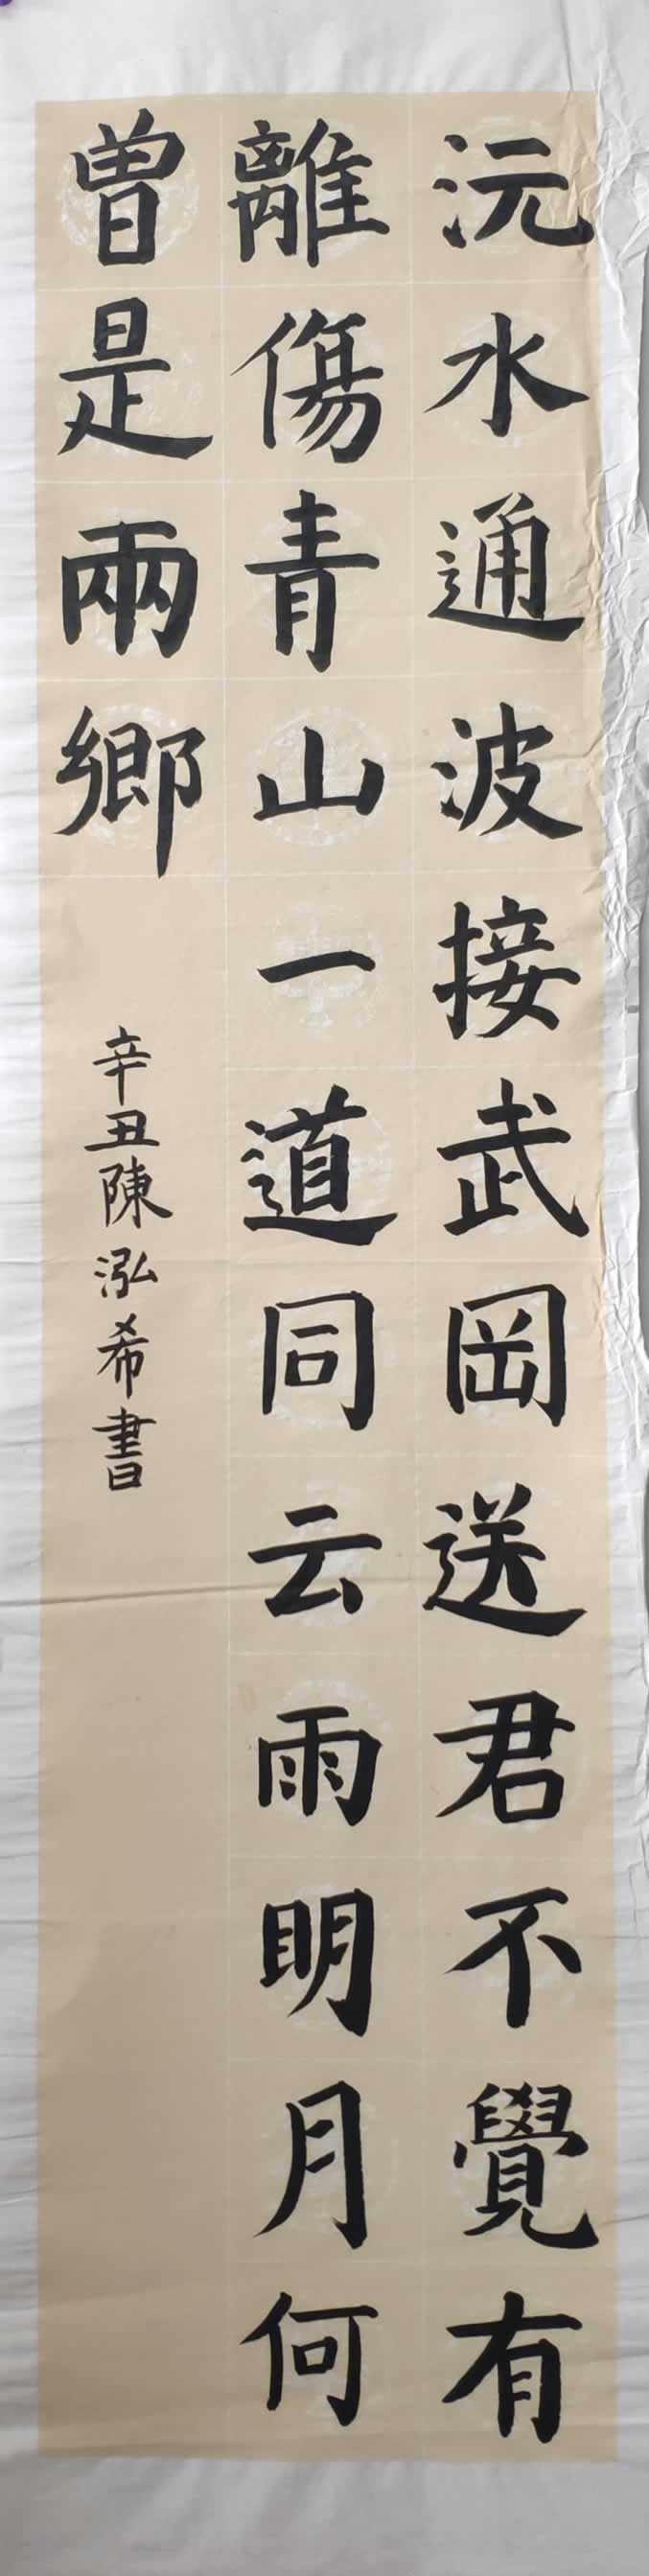 沅水通波接武岡送君不覺有
離傷青山一道同云雨明月何
曽是兩鄉
辛丑陳泓希書